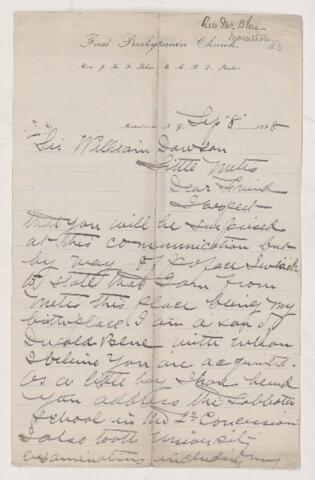 Rev Mr Blue
Marathon
N.Y.
First Presbyterian Church,
Rev. J. H. F. Blue, Pastor
Marathon N.Y. Sep "8" 1898
Sir William Dawson
Little Metis
Dear Friend
I expect
that you will be surprised
at this communication but
by way of preface I wish
to state that I am from
Metis this place being my
birthplace. I am a son of
Donald Blue with whom
I believe you are acquainted.
As a little boy I have heard
you address the Sabbath
School in the 2nd Concession
I also took University
examinations including my